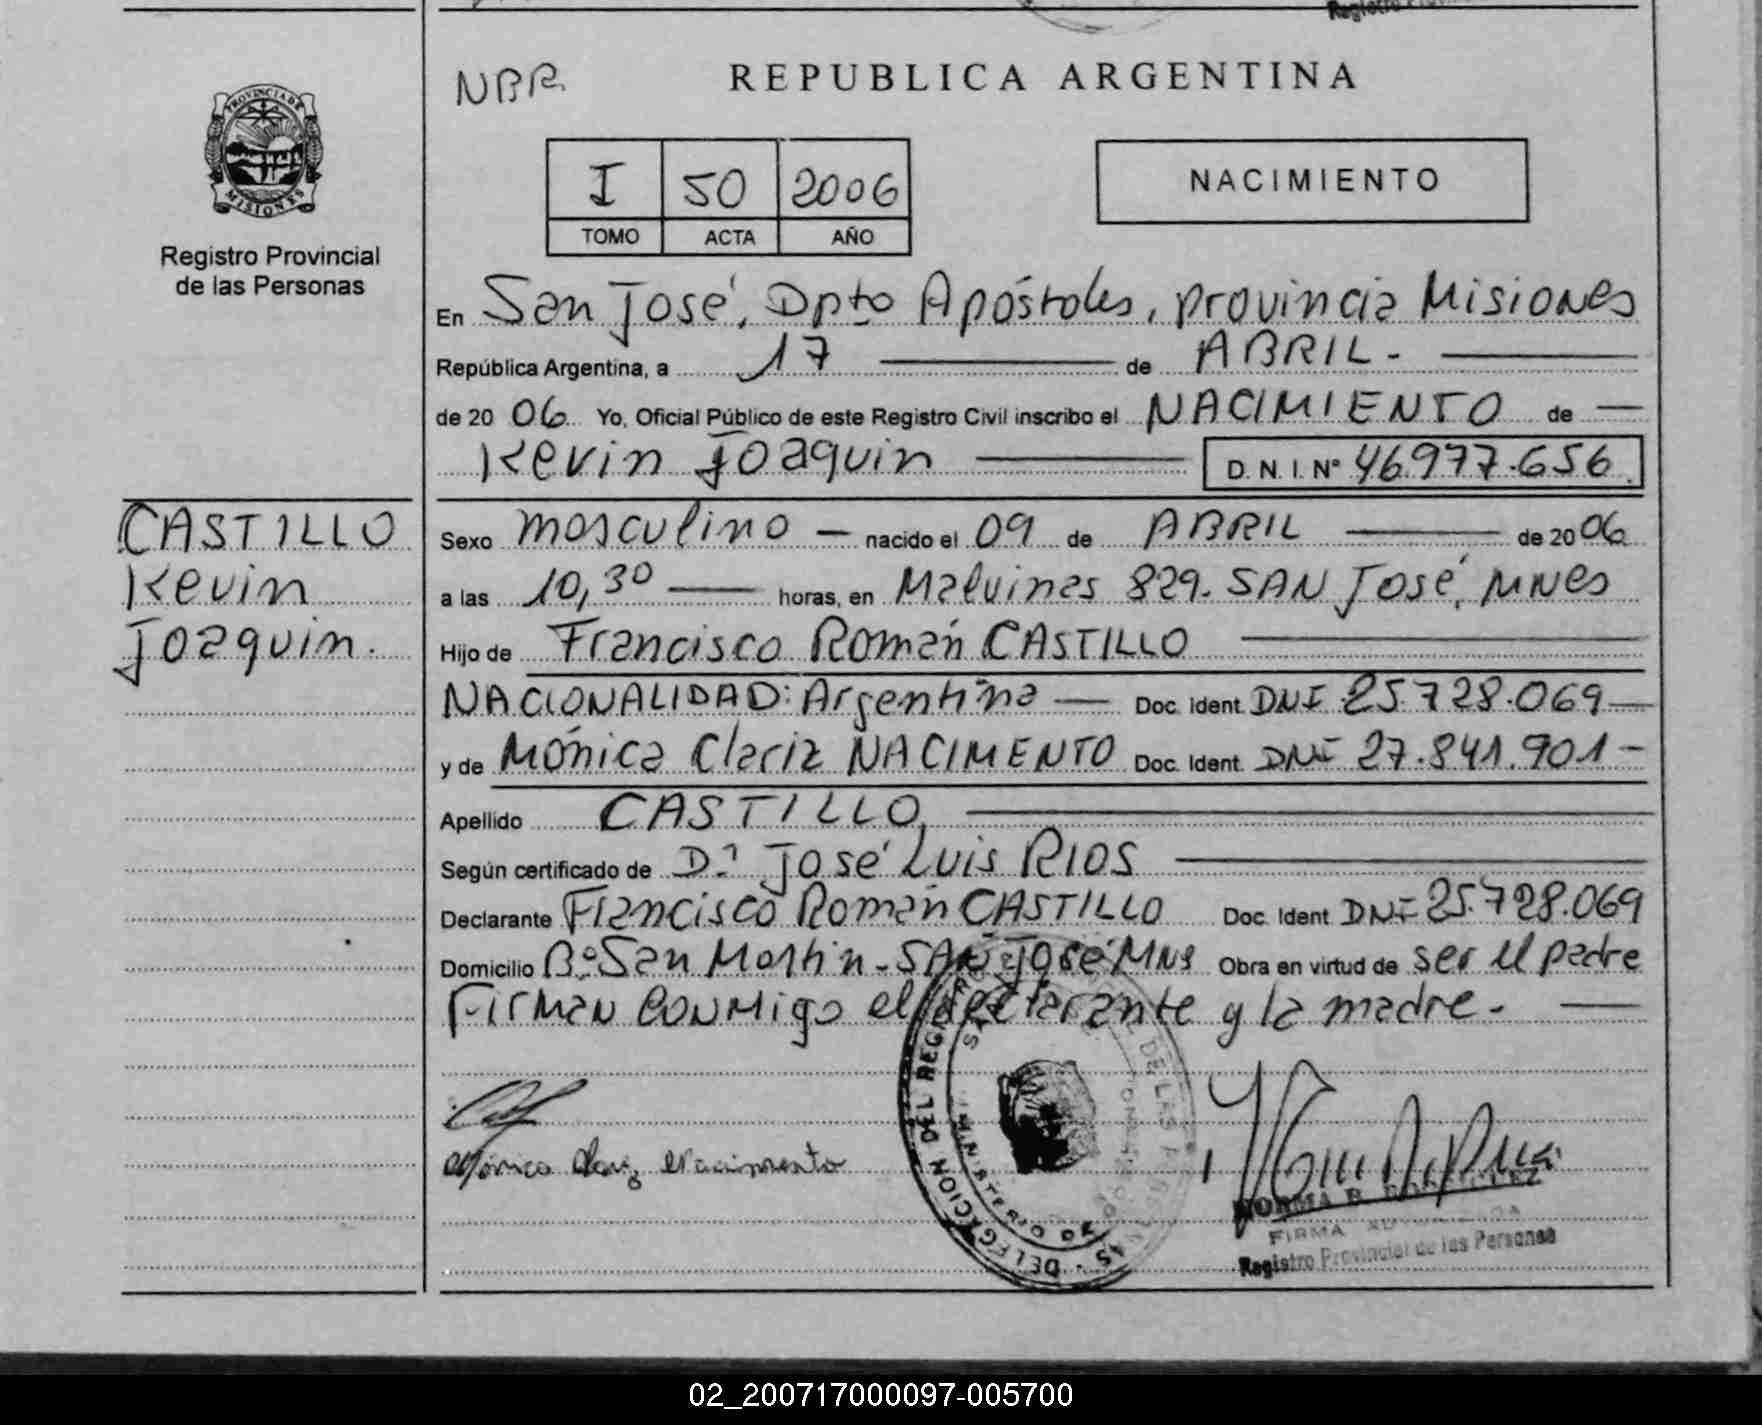 Registro Provincial
NBR
REPUBLICA ARGENTINA
PROVINCIA DE
MISIONES
Registro Provincial
de las Personas
I 50 2006
TOMO ACTA AÑO
NACIMIENTO
En San José, Dpto Apóstoles, provincia Misiones
República Argentina, a 17 de ABRIL.
de 20 06 Yo, Oficial Público de este Registro Civil inscribo el NACIMIENTO de
Kevin Joaquin D.N.I. N° 46.977.656
CASTILLO
Kevin
Joaquin.
Sexo masculino nacido el 09 de ABRIL de 20 06
a las 10,30 horas, en Malvinas 829. SAN José, MNES
Hijo de Francisco Román CASTILLO
NACIONALIDAD: Argentina Doc. Ident. DNI 25.728.069
y de Mónica Clariz NACIMENTO Doc. Ident. DNI 27.841.901
Apellido CASTILLO
Según certificado de Dr José Luis RIOS
Declarante Francisco Román CASTILLO Doc. Ident. DNI 25.728.069
Domicilio B° San Martin - SAN José MNS Obra en virtud de ser el padre
Firman conmigo el declarante y la madre.
Mónica Nacimento
DELEGACION DEL REG DE LAS
MINISTERIO DE
NORMA B.
FIRMA
Registro Provincial de las Personas
02_200717000097-005700